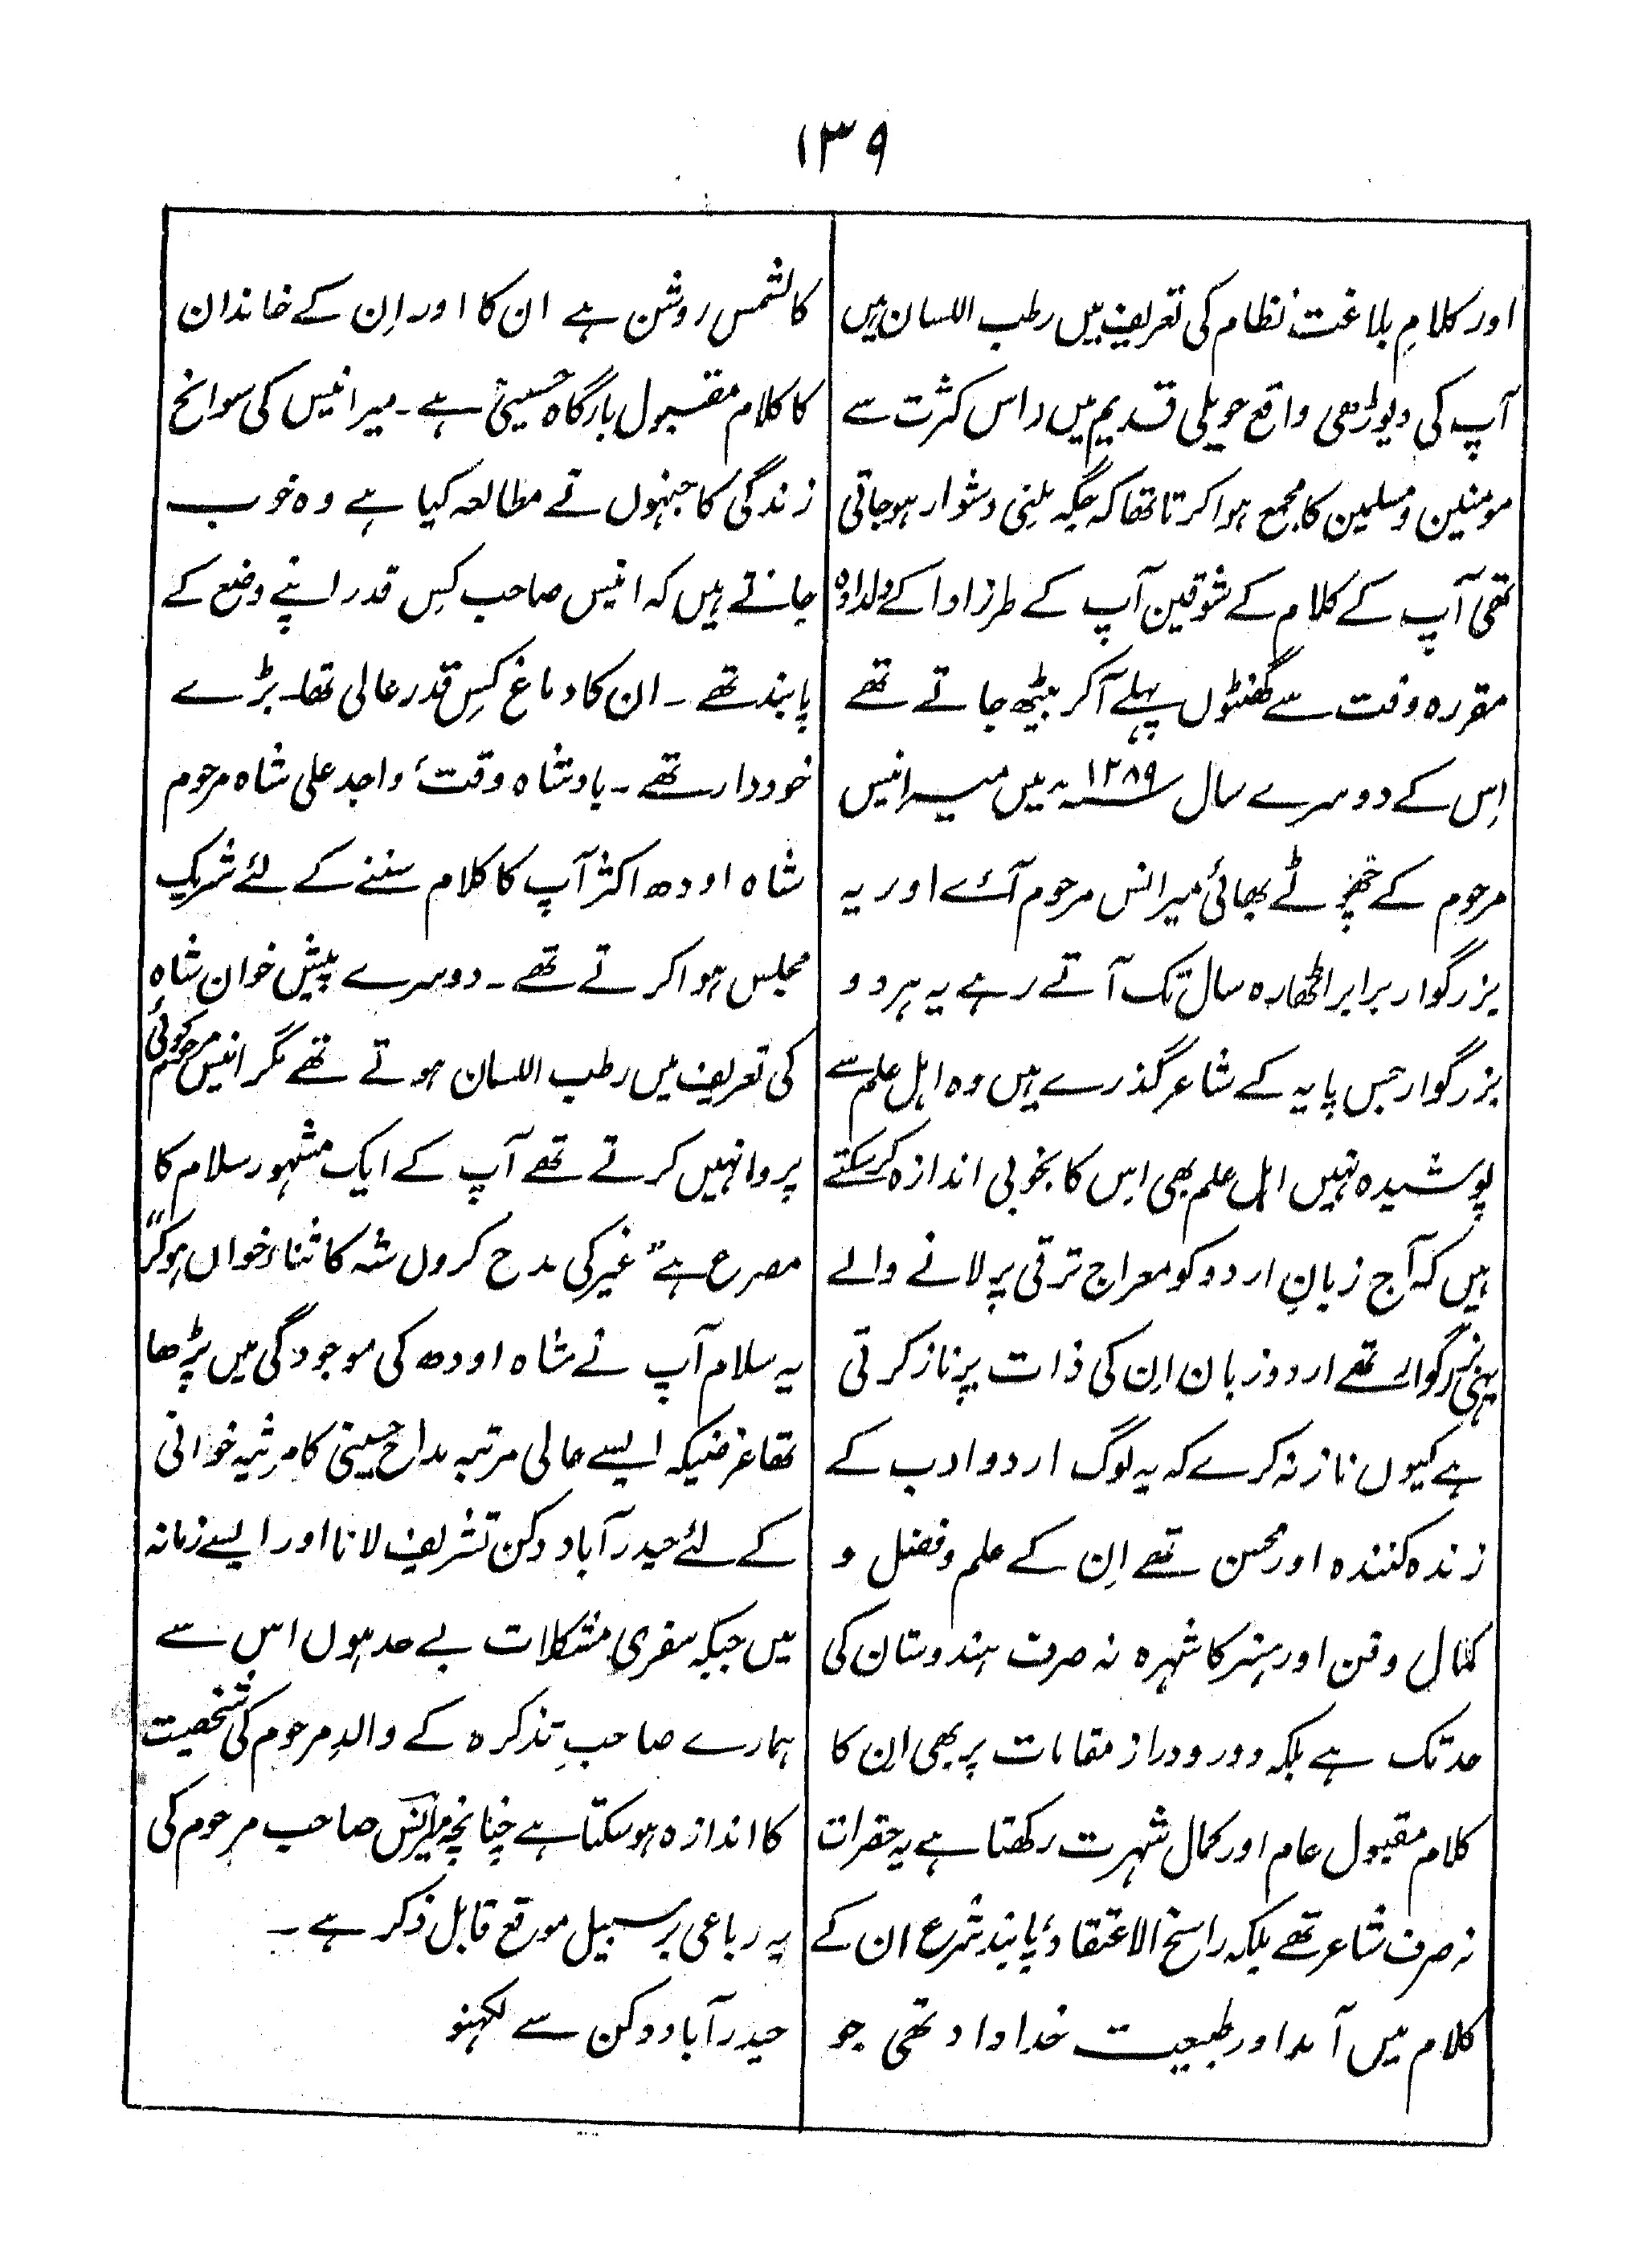 ۱۳۹
اور کلامِ بلاغت نظام کی تعریف میں رطب اللسان ہیں
آپ کی دیوڑھی واقع حویلی قدیم میں اس کثرت سے
مومنین ومسلمین کا مجمع ہوا کرتا تھا کہ جگہ ملنی دشوار ہوجاتی
تھی آپ کے کلام کے شوقین آپ کے طرز ادا کے دلدادہ
مقررہ وقت سے گھنٹوں پہلے آکر بیٹھ جاتے تھے
اِس کے دوسرے سال ۱۲۸۹؁ھ میں میر انیس
مرحوم کے چھوٹے بھائی میر انس مرحوم آئے اور یہ
بزرگوار برابر اٹھارہ سال تک آتے رہے یہ ہر دو
بزرگوار جس پایہ کے شاعر گذرے ہیں وہ اہل علم سے
پوشیدہ نہیں اہل علم بھی اس کا بخوبی اندازہ کرسکتے
ہیں کہ آج زبانِ اردو کو معراج ترقی پر لانے والے
یہی بزرگوار تھے اردو زبان اِن کی ذات پر ناز کرتی
ہے کیوں ناز نہ کرے کہ یہ لوگ اردو ادب کے
زندہ کنندہ اور محسن تھے اِن کے علم وفضل و
کمال وفن اور ہنر کا شہرہ نہ صرف ہندوستان کی
حد تک ہے بلکہ دور و دراز مقامات پر بھی اِن کا
کلام مقبول عام اور کمال شہرت رکھتا ہے یہ حضرات
نہ صرف شاعر تھے بلکہ راسخ الاعتقاد، پابند شرع ان کے
کلام میں آمد اور طبیعت خداداد تھی جو
کالشمس روشن ہے ان کا اور اِن کے خاندان
کا کلام مقبول بارگاہ حسینیؑ ہے۔ میر انیس کی سوانح
زندگی کا جنہوں نے مطالعہ کیا ہے وہ خوب
جانتے ہیں کہ انیس صاحب کِس قدر اپنے وضع کے
پابند تھے۔ ان کا دماغ کِس قدر عالی تھا۔ بڑے
خوددار تھے۔ بادشاہ وقت، واجد علی شاہ مرحوم
شاہ اودھ اکثر آپ کا کلام سننے کے لئے شریک
مجلس ہوا کرتے تھے۔ دوسرے پیش خوان شاہ
کی تعریف میں رطب اللسان ہوتے تھے مگر انیس مرحوم کوئی
پروا نہیں کرتے تھے آپ کے ایک مشہور سلام کا
مصرع ہے "غیر کی مدح کروں شہ کا ثناء خواں ہوکر"
یہ سلام آپ نے شاہ اودھ کی موجودگی میں پڑھا
تھا غرضیکہ ایسے عالی مرتبہ مداح حسینی کا مرثیہ خوانی
کے لئے حیدرآباد دکن تشریف لانا اور ایسے زمانہ
میں جبکہ سفری مشکلات بے حد ہوں اس سے
ہمارے صاحبِ تذکرہ کے والدِ مرحوم کی شخصیت
کا اندازہ ہوسکتا ہے چنانچہ میر انس صاحب مرحوم کی
یہ رباعی بر سبیل موقع قابل ذکر ہے۔
حیدرآباد دکن سے لکہنو